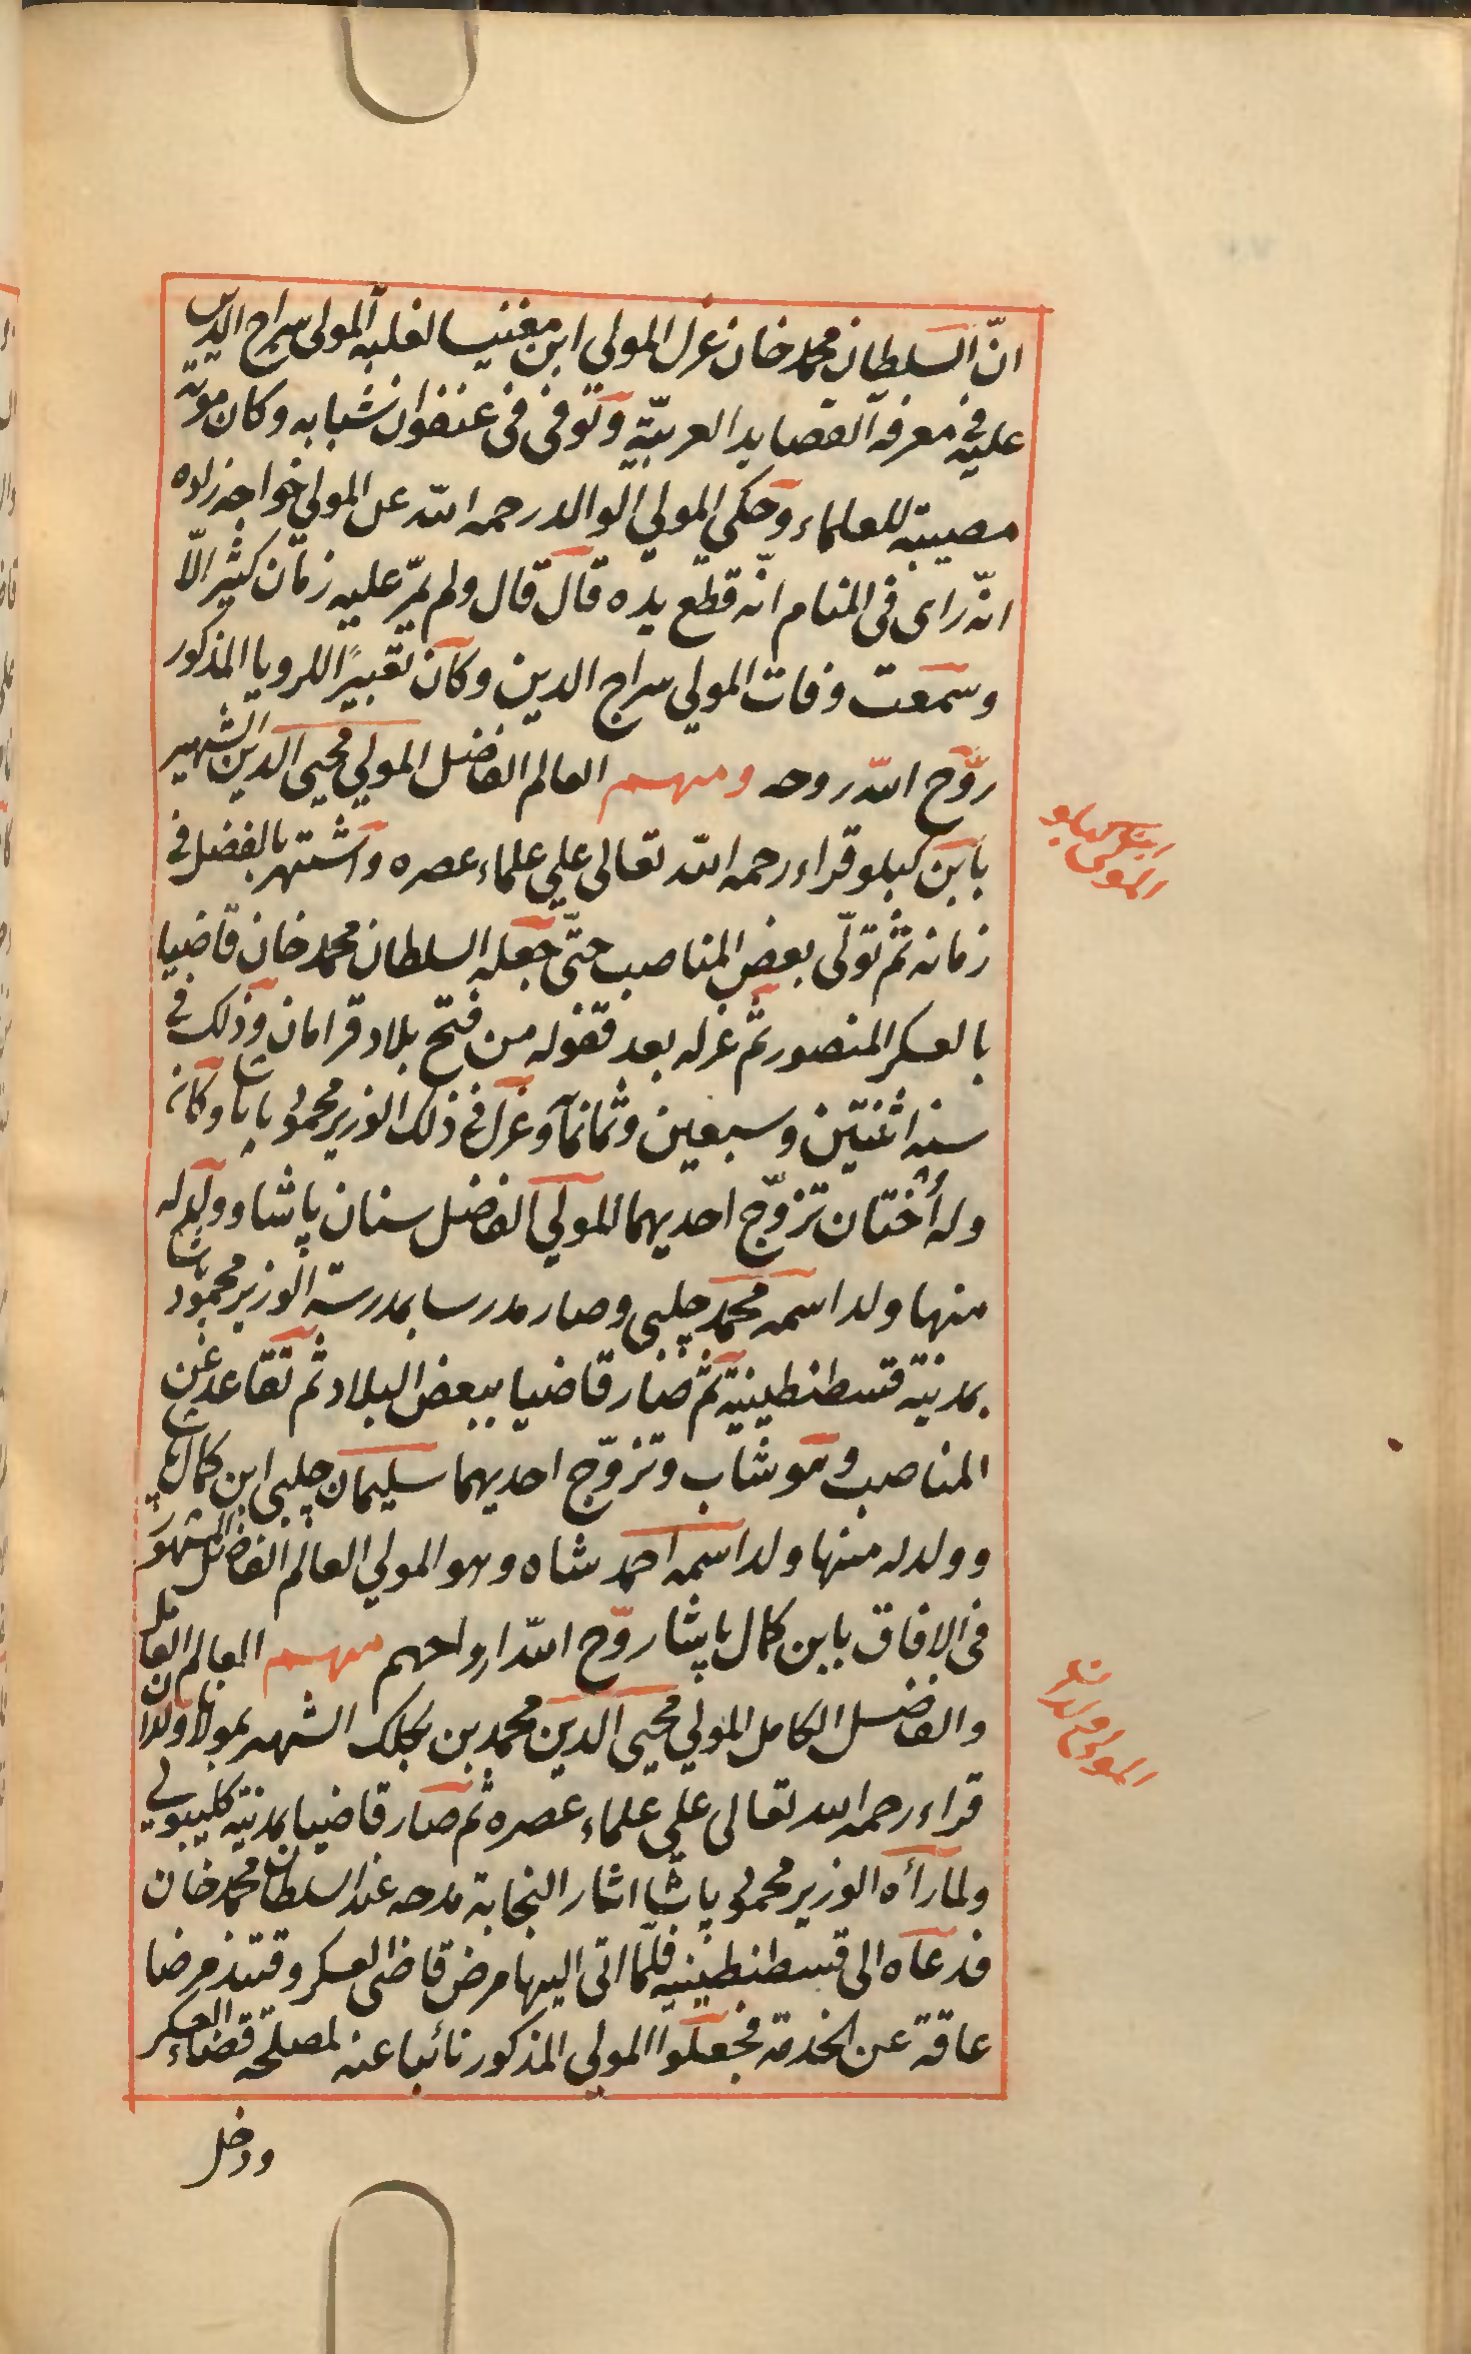 انّ السلطان محمد خان عزل المولى ابن مغنيسا لغلبة المولى سراج الدين
عليه فى معرفة القصايد العربيّة وتوفى فى عنفوان شبابه وكان موته
مصيبة للعلماء وحكى المولي الوالد رحمه الله عن المولي خواجه زاده
انّه راى فى المنام انّه قطع يده قال قال ولم يمرّ عليه زمان كثير الّا
وسمعت وفات المولي سراج الدين وكان تعبيرًا للرويا المذكور
روّح الله روحه ومنهم العالم الفاضل المولي محيى الدين الشهير
بابن كبلو قراء رحمه الله تعالى علي علماء عصره واشتهر بالفضل فى
زمانه ثم تولّى بعض المناصب حتّى جعله السلطان محمد خان قاضيا
بالعسكر المنصور ثم عزله بعد قفوله من فتح بلاد قرامان وذلك فى
سنه اثنتين وسبعين وثمانمآ وعزل فى ذلك الوزير محمود پاشا وكانـ
وله أختان تزوّج احديهما المولي الفاضل سنان پاشا وولد له
منها ولد اسمه محمد چلبى وصار مدرسا بمدرسة الوزير محمود پاشا
بمدينة قسطنطينية ثم صار قاضيا ببعض البلاد ثم تقاعد عن
المناصب وهو شاب وتزوّج احديهما سليمان چلبى ابن كمال پاشا
وولد له منها ولد اسمه احمد شاه وهو المولي العالم الفاضل المشهور
فى الافاق بابن كمال پاشا روّح الله ارواحهم منهم العالم العامل
والفاضل الكامل المولي محيى الدين محمد بن كجلك الشهير بمولانا ولدان
قراء رحمه الله تعالى علي علماء عصره ثم صار قاضيا بمدينة كليبولي
ولما رأه الوزير محمود پاشا اثار النجابة مدحه عند السلطان محمد خان
فدعاه الى قسطنطينيه فلمّا اتى اليها مرض قاضى العسكر وقتئذ مرضا
عاقة عن الخدمة فجعلوا المولي المذكور نائبا عنه لمصلحة قضاء العسكر
ودخل
المولى
ابن كبلو
المولى ولدان